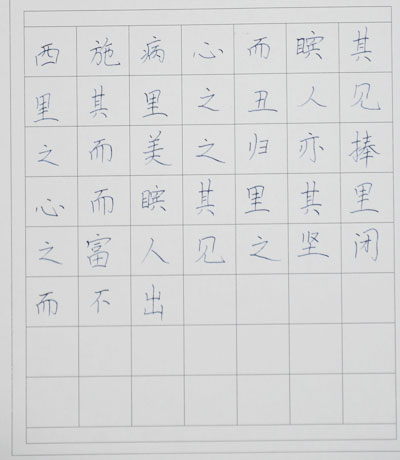 西施病心而矉其
里其里之丑人见
之而美之归亦捧
心而矉其里其里
之富人见之坚闭
而不出